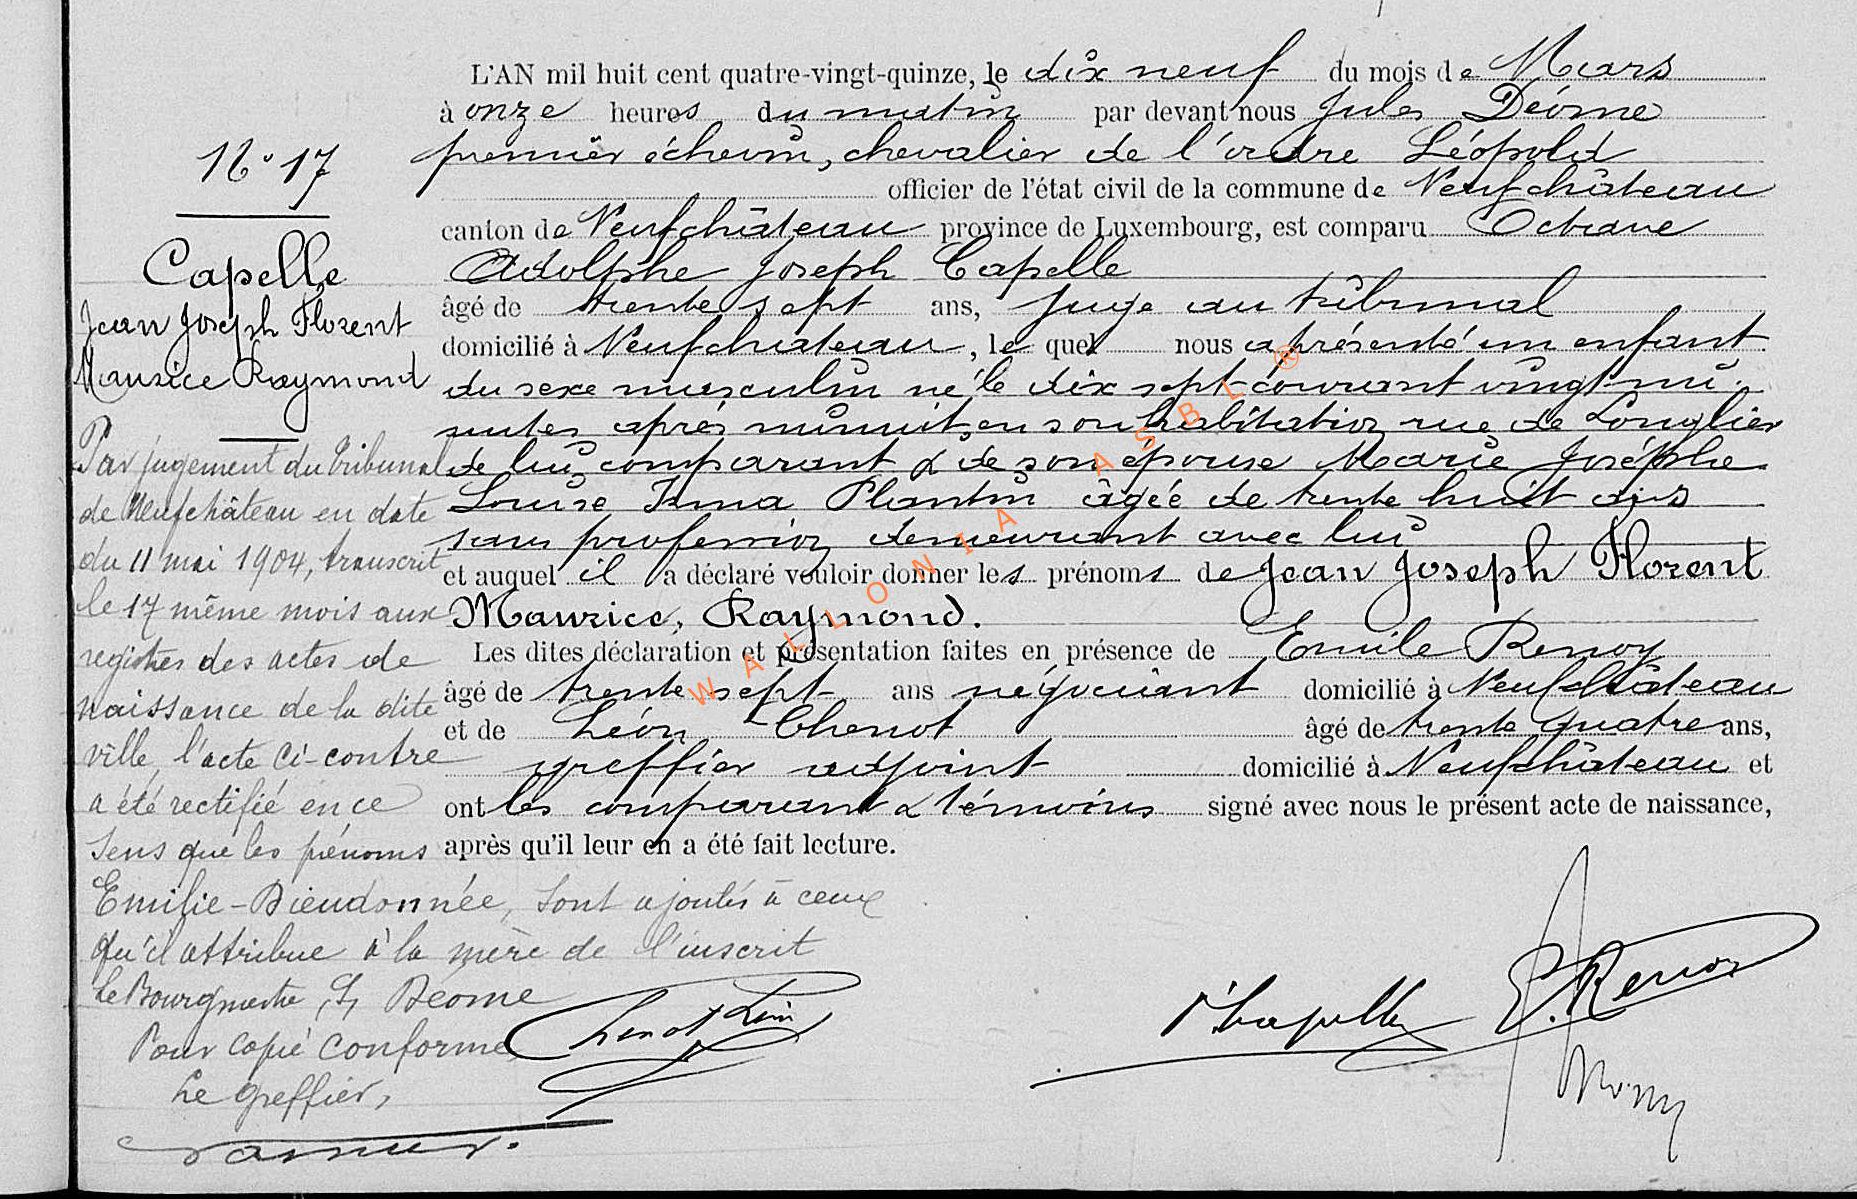 N° 17
Capelle
Jean Joseph Florent
Maurice Raymond
Par jugement du tribunal
de Neufchâteau en date
du 11 mai 1904, transcrit
le 17 même mois aux
registres des actes de
naissance de la dite
ville, l'acte ci-contre
a été rectifié en ce
sens que les prénoms
Emilie-Dieudonnée, sont ajoutés à ceux
qu'il attribue à la mère de l'inscrit
Le Bourgmestre, Déome
Pour copie conforme
Le Greffier,
L'AN mil huit cent quatre-vingt-quinze, le dix neuf du mois de Mars
à onze heures du matin par devant nous Jules Déome
premier échevin, chevalier de l'ordre Léopold
officier de l'état civil de la commune de Neufchâteau
canton de Neufchâteau province de Luxembourg, est comparu Octave
Adolphe Joseph Capelle
âgé de trente sept ans, juge au tribunal
domicilié à Neufchateau, le quel nous a présenté un enfant
du sexe masculin né le dix sept courant vingt mi-
nutes après minuit, en son habitation rue de Longlier
de lui comparant & de son épouse Marie Josèphe
Louise Irma Plantin âgée de trente huit ans
sans profession demeurant avec lui
et auquel il a déclaré vouloir donner les prénoms de Jean Joseph Florent
Maurice, Raymond.
Les dites déclaration et présentation faites en présence de Emile Renoy
âgé de trente sept ans négociant domicilié à Neufchâteau
et de Léon Chenot âgé de trente quatre ans,
greffier adjoint domicilié à Neufchâteau et
ont les comparant & témoins signé avec nous le présent acte de naissance,
après qu'il leur en a été fait lecture.
Chenot Léon
Capelle
E. Renoy
WALLONIA ASBL ®